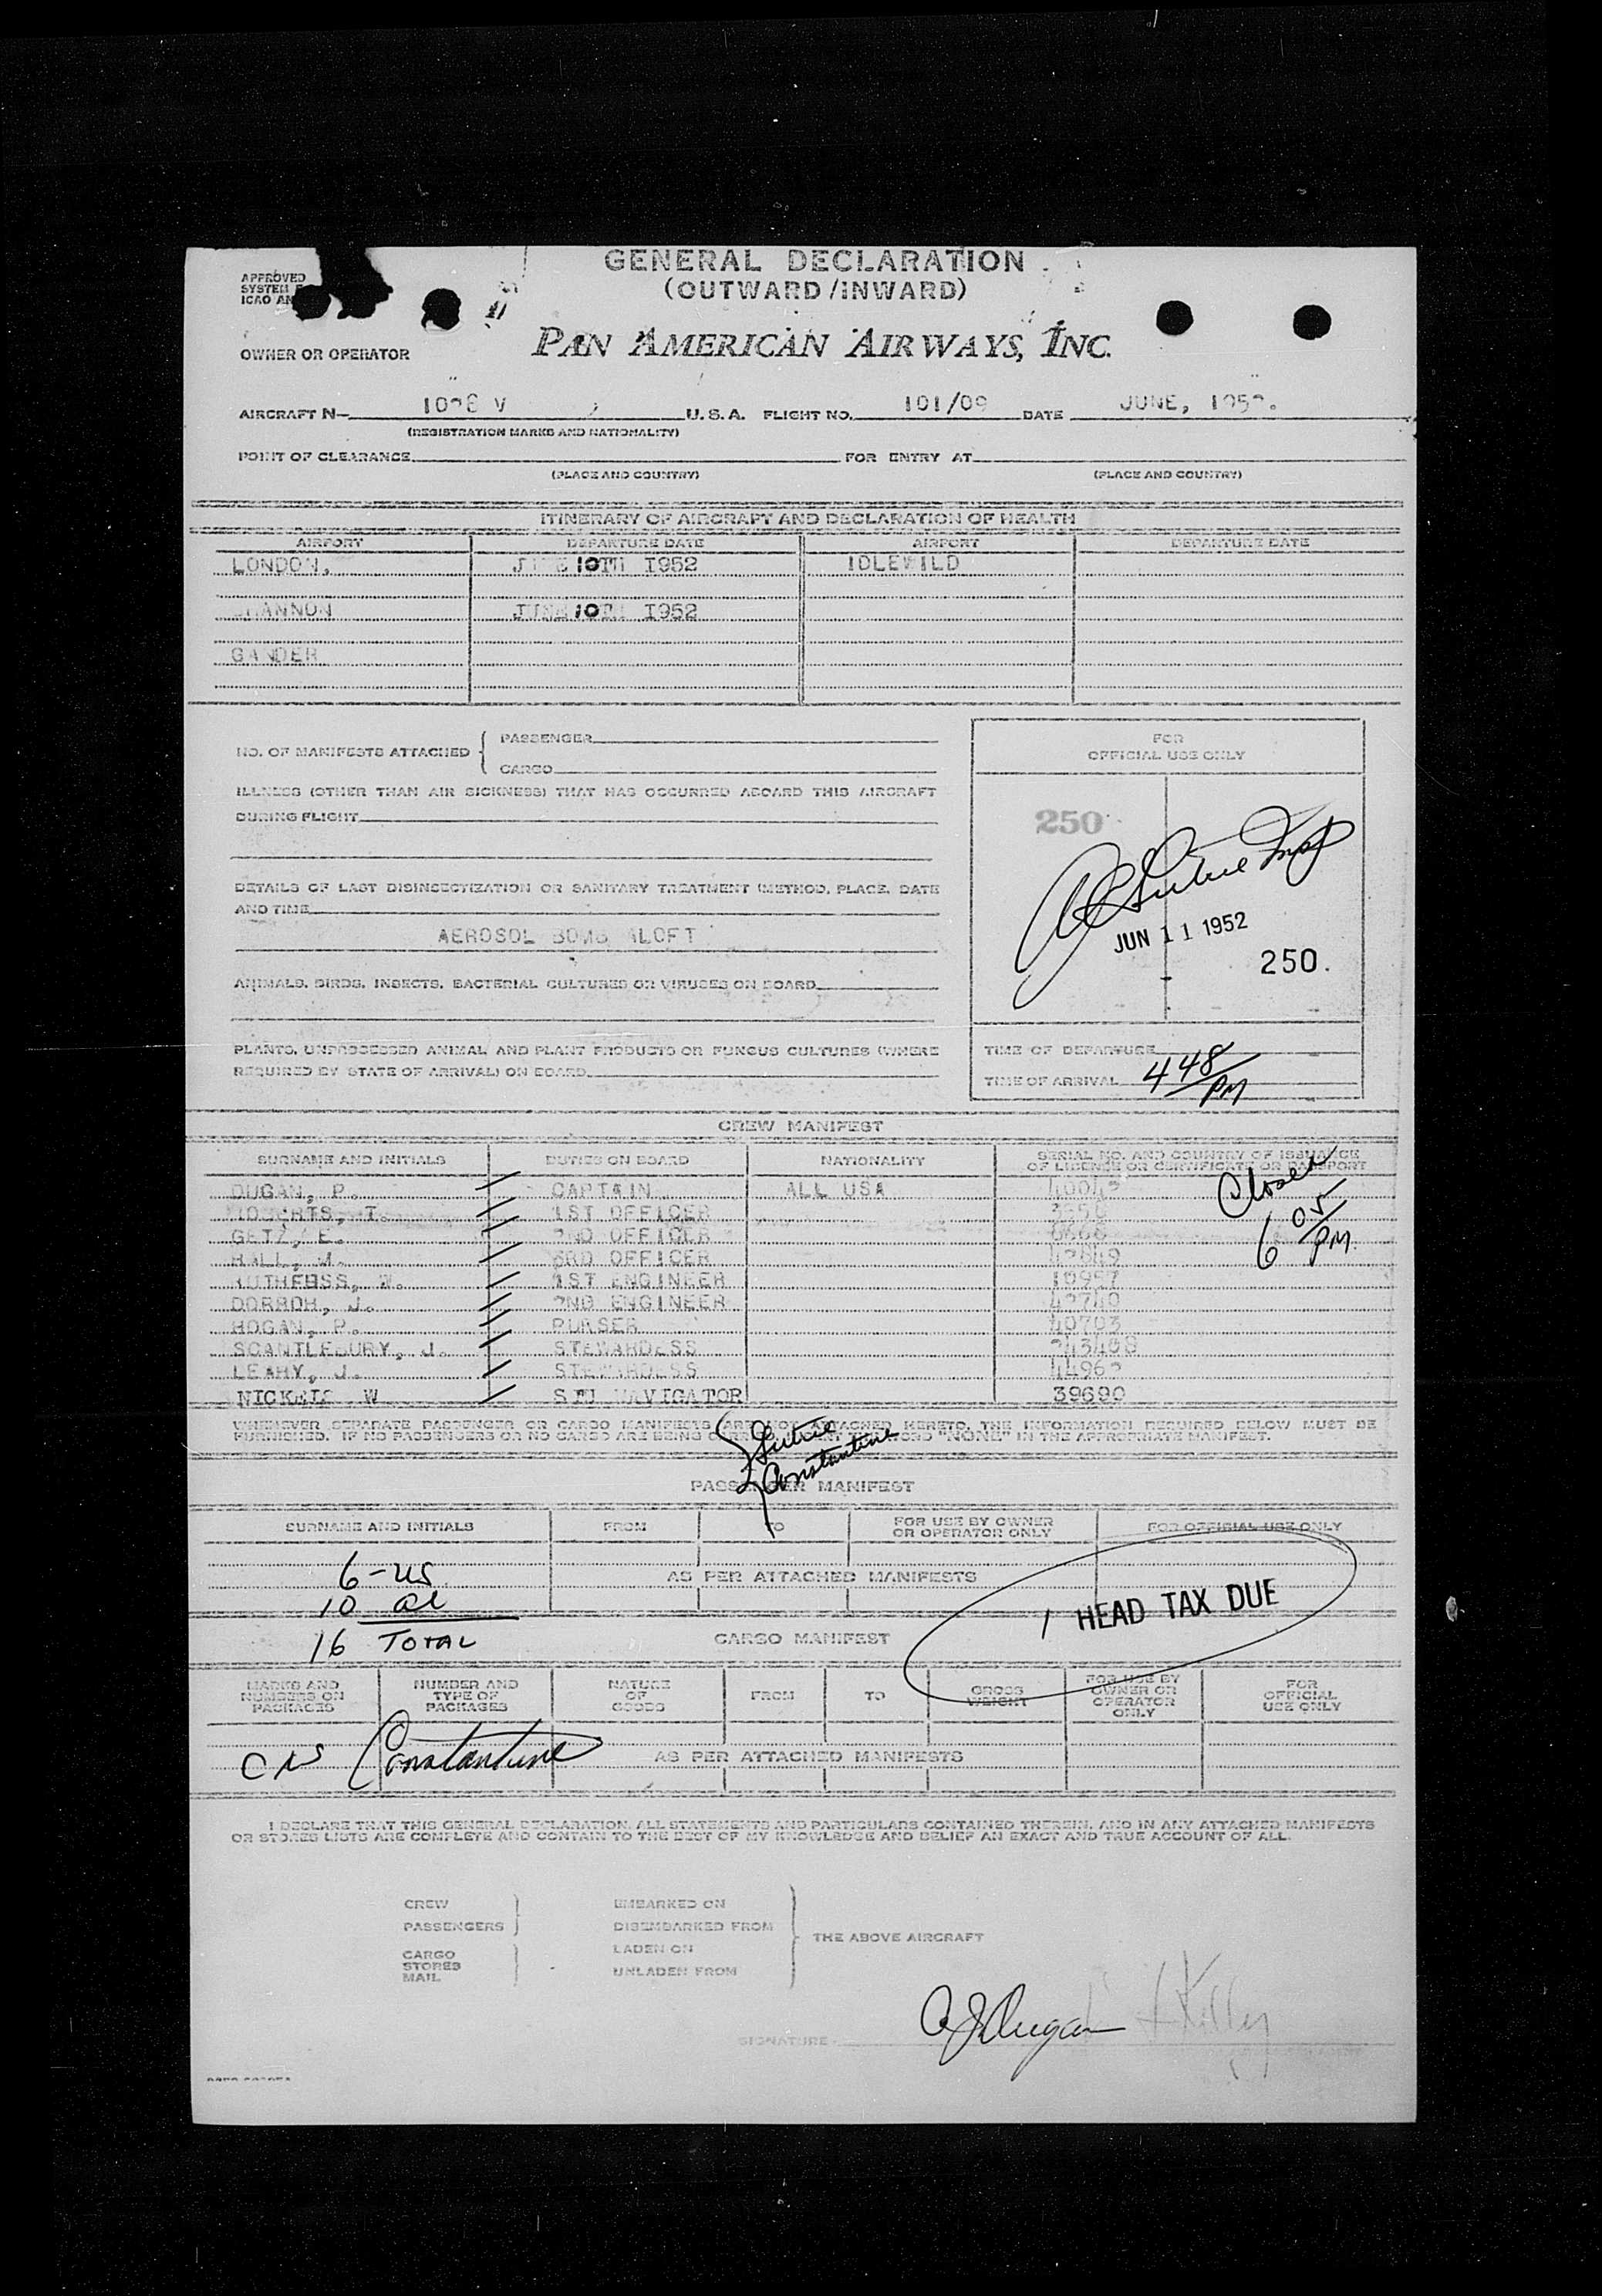 GENERAL DECLARATION
(OUTWARD/INWARD)
APPROVED
SYSTEM
ICAO AN
PAN AMERICAN AIRWAYS, INC.
OWNER OR OPERATOR
AIRCRAFT N- V U.S.A. FLIGHT NO. 101/09 DATE JUNE, 1952.
(REGISTRATION MARKS AND NATIONALITY)
POINT OF CLEARANCE FOR ENTRY AT
(PLACE AND COUNTRY) (PLACE AND COUNTRY)
ITINERARY OF AIRCRAFT AND DECLARATION OF HEALTH
AIRPORT DEPARTURE DATE AIRPORT DEPARTURE DATE
LONDON, JUNE 10TH 1952 IDLEWILD
SHANNON JUNE 10TH 1952
GANDER
NO. OF MANIFESTS ATTACHED { PASSENGER
CARGO
ILLNESS (OTHER THAN AIR SICKNESS) THAT HAS OCCURRED ABOARD THIS AIRCRAFT
DURING FLIGHT
DETAILS OF LAST DISINSECTIZATION OR SANITARY TREATMENT (METHOD, PLACE, DATE
AND TIME
AEROSOL BOMB ALOFT
ANIMALS, BIRDS, INSECTS, BACTERIAL CULTURES OR VIRUSES ON BOARD
PLANTS, UNPROCESSED ANIMAL AND PLANT PRODUCTS OR FUNGUS CULTURES (WHERE
REQUIRED BY STATE OF ARRIVAL) ON BOARD
FOR
OFFICIAL USE ONLY
250
JUN 11 1952
250.
TIME OF DEPARTURE
TIME OF ARRIVAL 448 PM
CREW MANIFEST
SURNAME AND INITIALS DUTIES ON BOARD NATIONALITY SERIAL NO. AND COUNTRY OF ISSUANCE
OF LICENSE OR CERTIFICATE OR PASSPORT
DUGAN, P. CAPTAIN ALL USA
ROBERTS, T. 1ST OFFICER
GETZ, E. 2ND OFFICER
HALL, M. 3RD OFFICER
W. 1ST ENGINEER 10957
J. 2ND ENGINEER 42740
HOGAN, P. PURSER 40703
SCANTLEBURY, J. STEWARDESS
LEAHY, J. STEWARDESS
W SEN NAVIGATOR 39690
Closed
6 05 PM
WHENEVER SEPARATE PASSENGER OR CARGO MANIFESTS ARE NOT ATTACHED HERETO, THE INFORMATION REQUIRED BELOW MUST BE
FURNISHED. IF NO PASSENGERS OR NO CARGO ARE BEING "NONE" IN THE APPROPRIATE MANIFEST.
Constantine
PASSENGER MANIFEST
SURNAME AND INITIALS FROM TO FOR USE BY OWNER
OR OPERATOR ONLY FOR OFFICIAL USE ONLY
6-US
10 al
16 TOTAL
AS PER ATTACHED MANIFESTS
1 HEAD TAX DUE
CARGO MANIFEST
MARKS AND
NUMBERS ON
PACKAGES
NUMBER AND
TYPE OF
PACKAGES
NATURE
OF
GOODS
FROM
TO
GROSS
WEIGHT
FOR USE BY
OWNER OR
OPERATOR
ONLY
FOR
OFFICIAL
USE ONLY
Constantine
AS PER ATTACHED MANIFESTS
I DECLARE THAT THIS GENERAL DECLARATION, ALL STATEMENTS AND PARTICULARS CONTAINED THEREIN, AND IN ANY ATTACHED MANIFESTS
OR STORES LISTS ARE COMPLETE AND CONTAIN TO THE BEST OF MY KNOWLEDGE AND BELIEF AN EXACT AND TRUE ACCOUNT OF ALL.
CREW
PASSENGERS
CARGO
STORES
MAIL
EMBARKED ON
DISEMBARKED FROM
LADEN ON
UNLADEN FROM
THE ABOVE AIRCRAFT
SIGNATURE